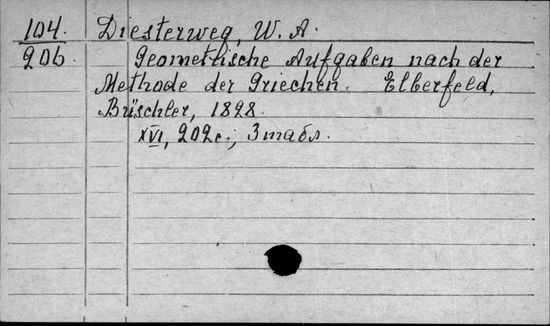 104. Diesterweg, W. A.
206. Geometrische Aufgaben nach der
Methode der Griechen. Elberfeld,
Büschler, 1828.
XVI, 202 с., 3 табл.